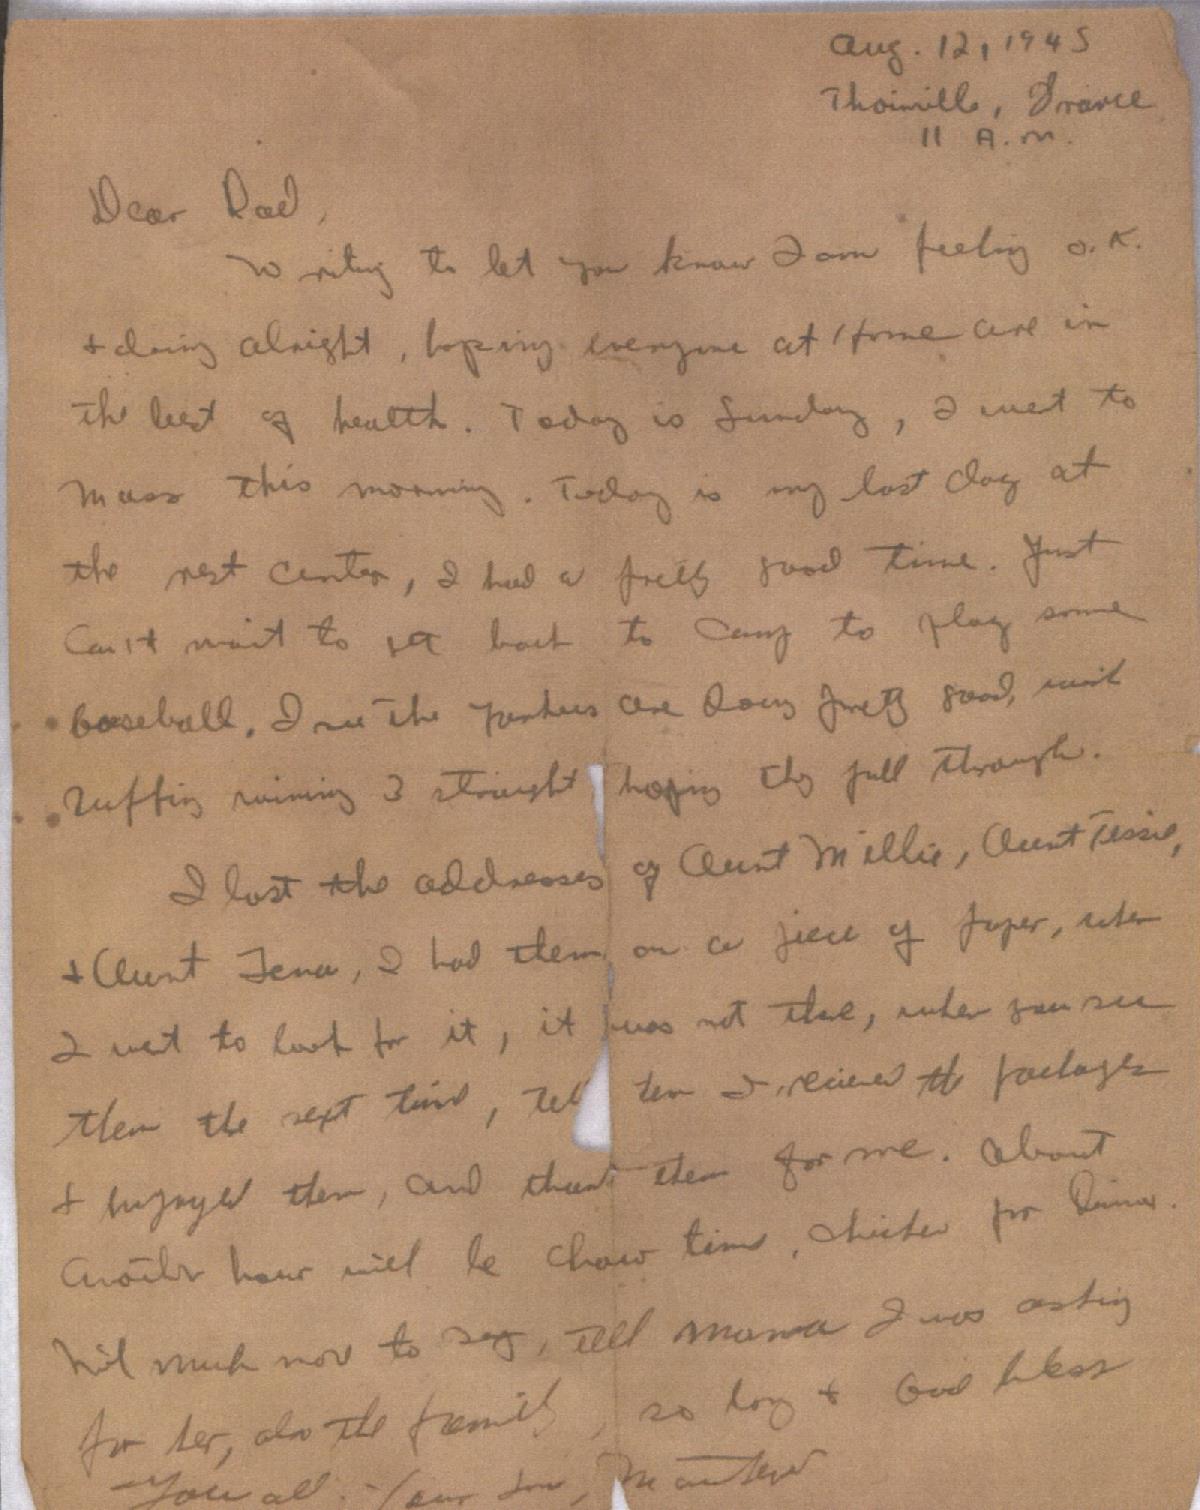 Aug. 12, 1945
Thoinville, France
11 A.M.
Dear Dad,
Writing to let you know I am feeling O.K.
+ doing alright, hoping everyone at home are in
the best of health. Today is Sunday, I went to
Mass this morning. Today is my last day at
the rest center, I had a pretty good time. Just
can't wait to get back to camp to play some
baseball. I see the Yankees are doing pretty good, with
Ruffing winning 3 straight hoping they pull through.
I lost the addresses of Aunt Millie, Aunt Tessie,
+ Aunt Lena, I had them on a piece of paper, when
I went to look for it, it was not there, when you see
them the next time, tell them I received the packages
+ enjoyed them, and thank them for me. About
another hour will be chow time, chicken for dinner.
Not much more to say, tell Mama I was asking
for her, also the family, so long + God bless
you all. Your son,